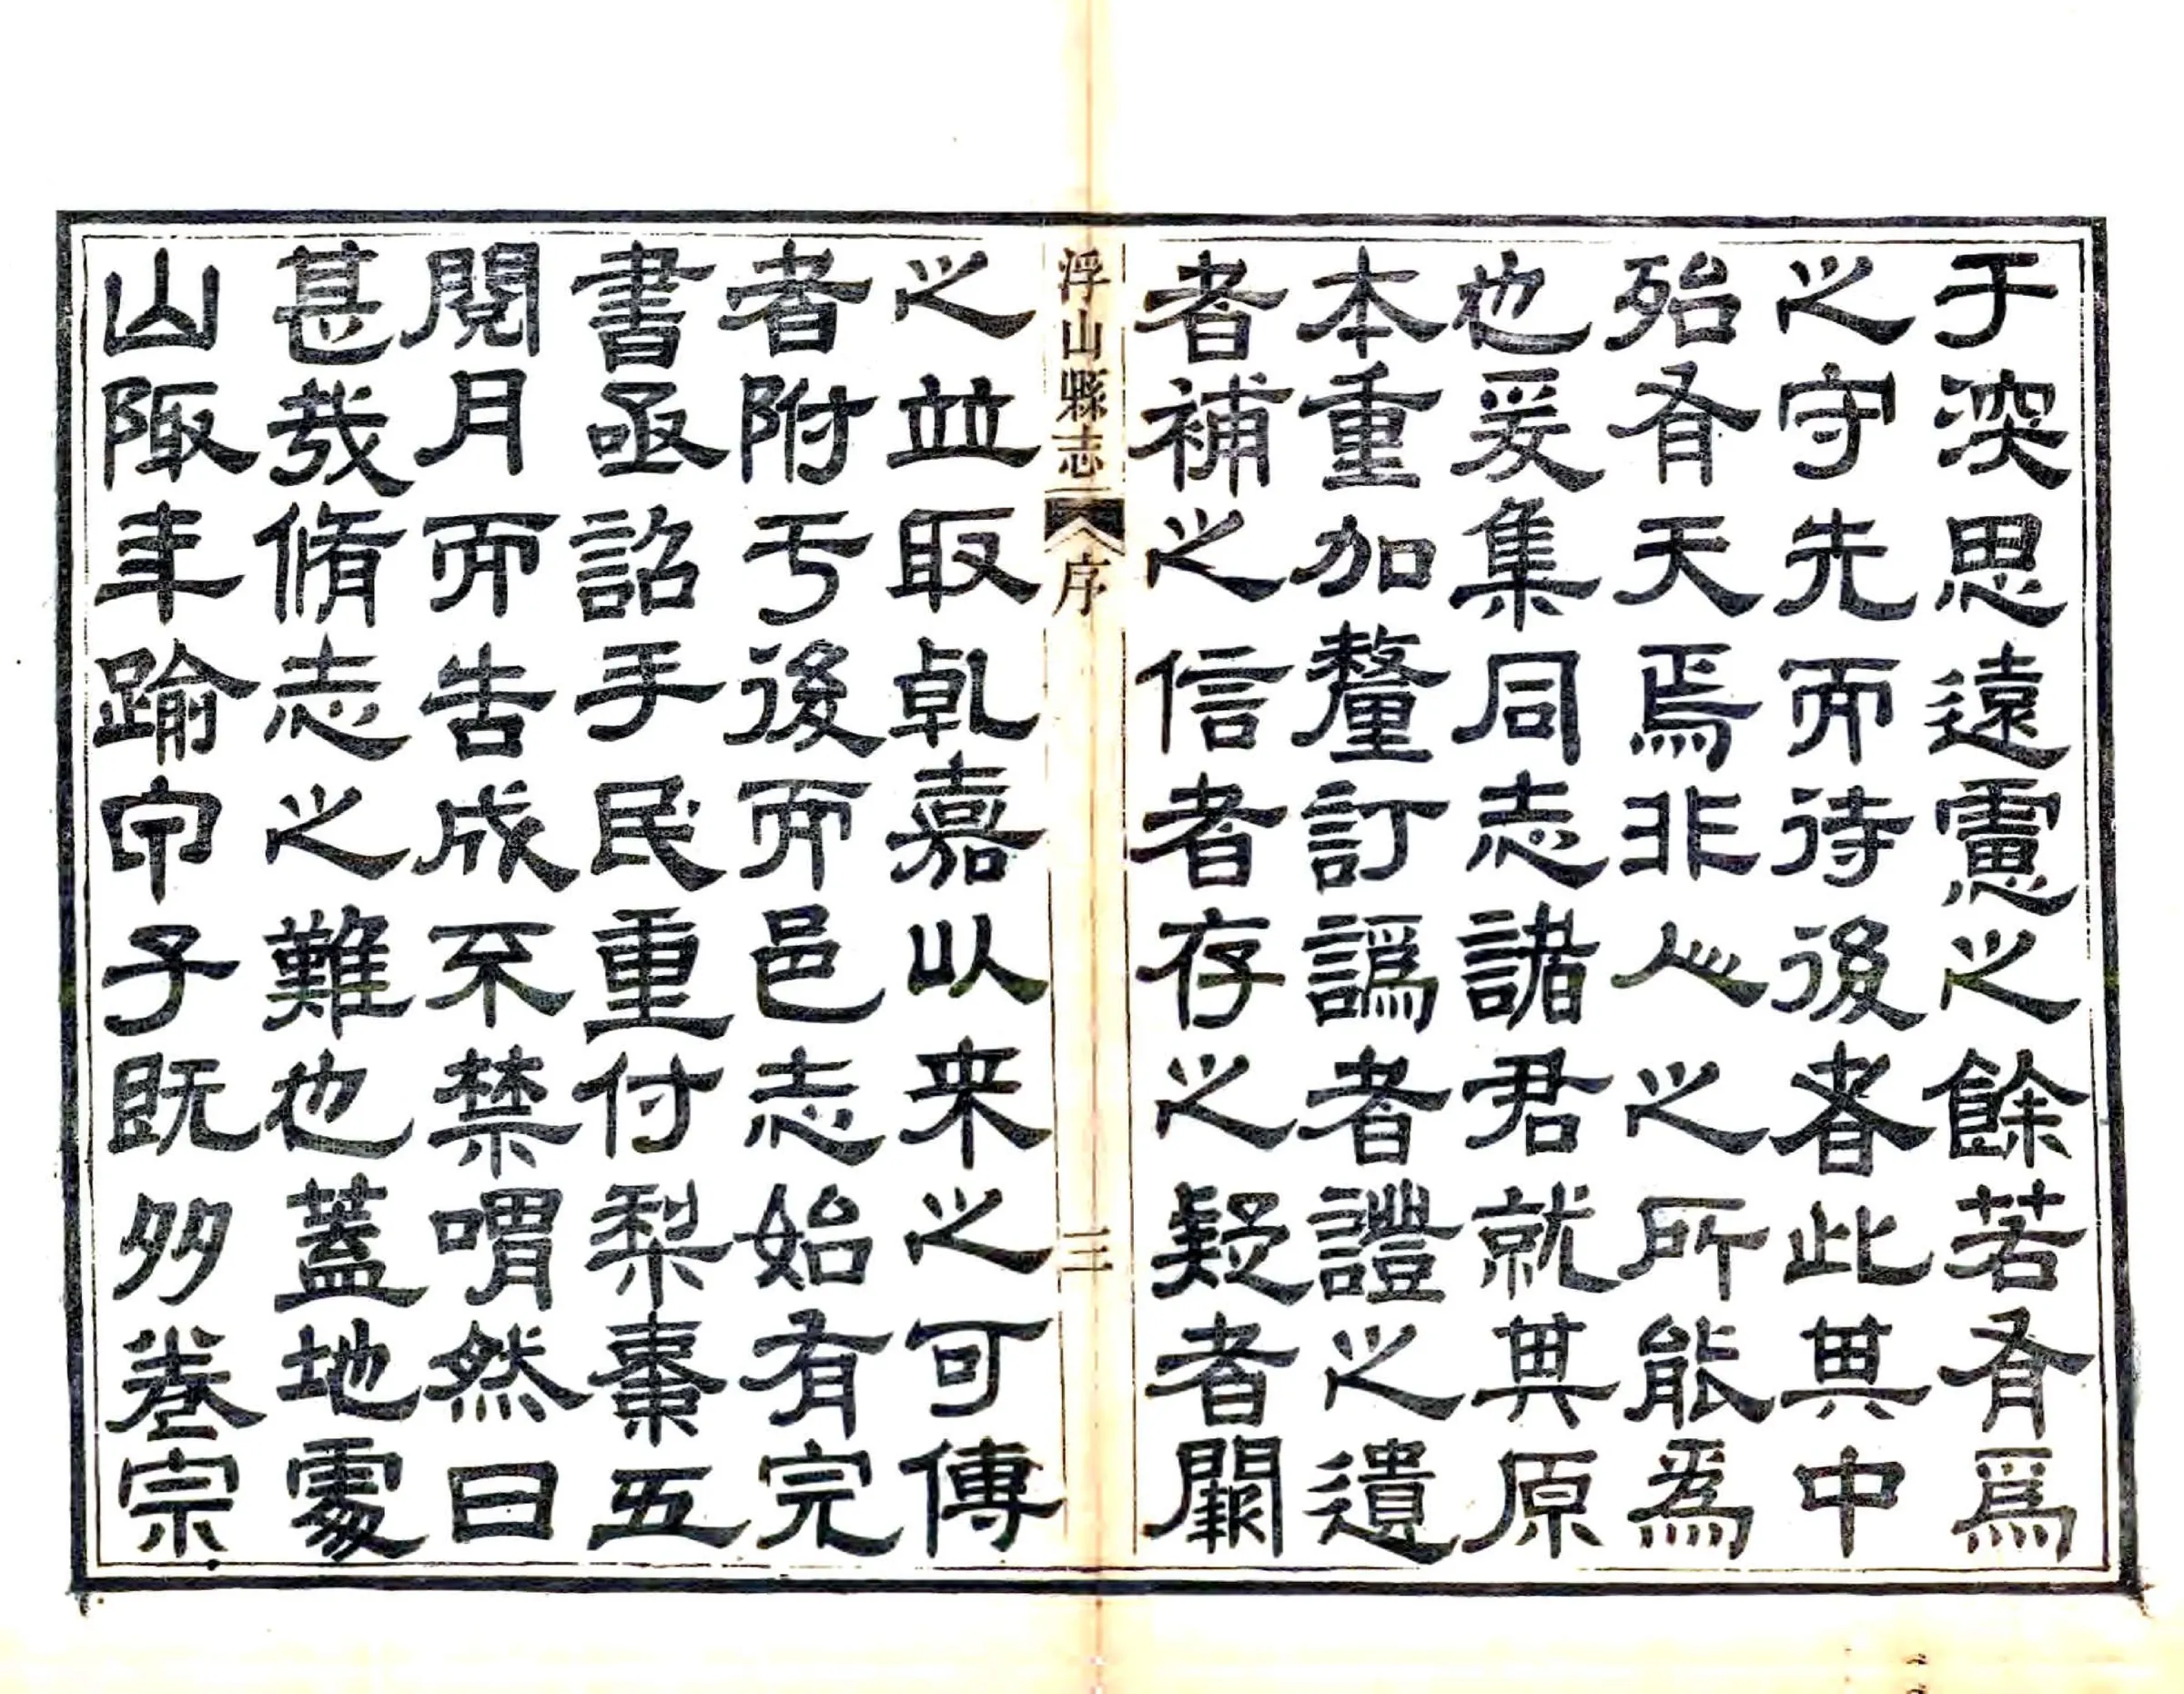 于深思遠慮之餘若有爲
之守先而待後者此其中
殆有天焉非人之所能爲
也爰集同志諸君就其原
本重加釐訂譌者證之遺
者補之信者存之疑者闕
浮山縣志 序 三
之並取乹嘉以来之可傳
者附于後而邑志始有完
書亟詔手民重付梨棗五
閱月而告成不禁喟然曰
甚哉脩志之難也蓋地處
山陬年踰甲子既尠卷宗